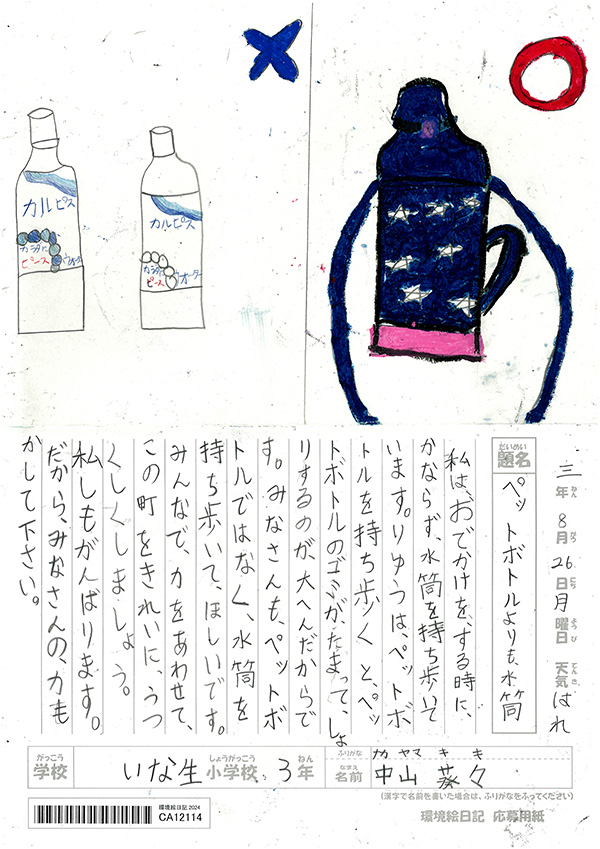 カルピス
カラダに
ピース
カルピス
カラダに
ピース
ウォーター
三年 8月 26日 月曜日 天気 はれ
ねん がつ にち ようび てんき
だいめい
題名
ペットボトルよりも、水筒
私は、おでかけを、する時に、
かならず、水筒を持ち歩いて
います。りゆうは、ペットボ
トルを持ち歩くと、ペッ
トボトルのゴミが、たまって、しょ
りするのが、大へんだからで
す。みなさんも、ペットボ
トルではなく、水筒を
持ち歩いて、ほしいです。
みんなで、力をあわせて、
この町をきれいに、うつ
くしくしましょう。
私しもがんばります。
だから、みなさんの、力も
かして下さい。
がっこう しょうがっこう ねん
学校 いな生 小学校 3年
ふりがな ナカ ヤマ キ キ
なまえ
名前 中山 葵々
(漢字で名前を書いた場合は、ふりがなをふってください)
環境絵日記 2024
CA12114
環境絵日記 応募用紙